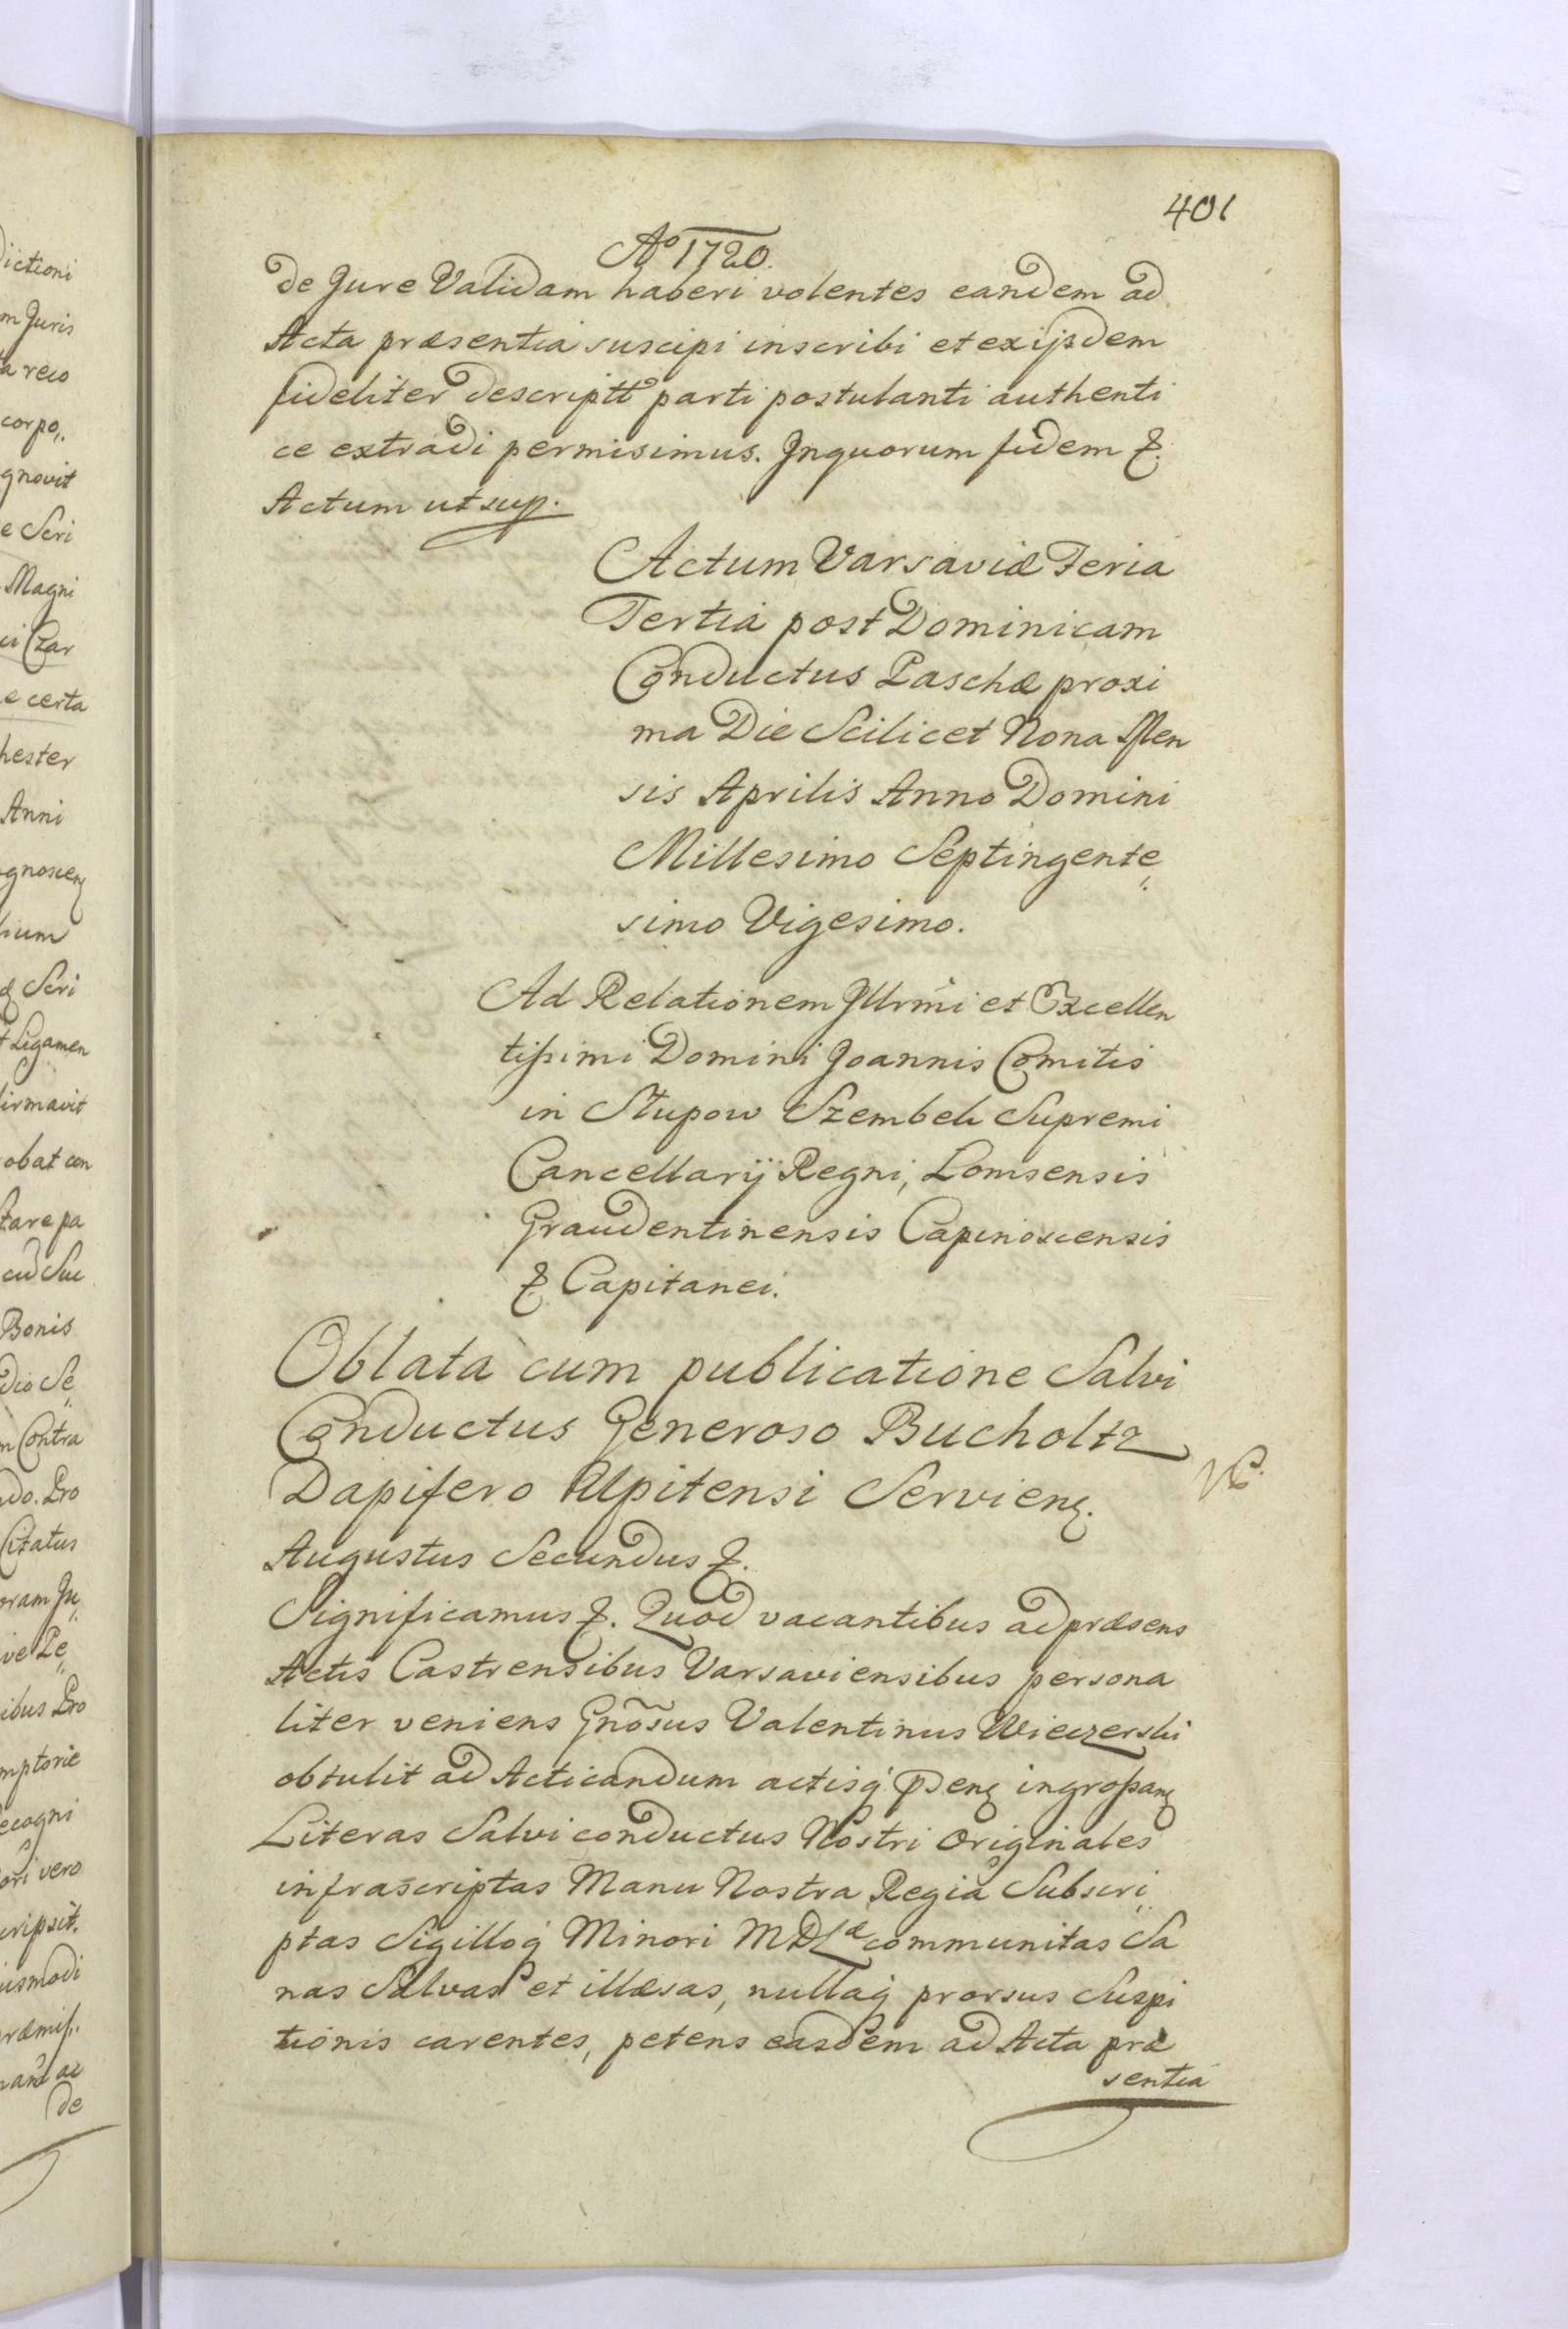 401
Aº 1720.
de Jure Validam haberi volentes eandem ad
Acta præsentia suscipi inscribi et ex ijsdem
fideliter descriptt parti postulanti authenti
ce extradi permisimus. Inquorum fidem &.
Actum ut sup.
Actum Varsaviæ Feria
Tertia post Dominicam
Conductus Paschæ proxi
ma Die Scilicet Nona Men
sis Aprilis Anno Domini
Millesimo Septingente„
simo Vigesimo.
Ad Relationem Illrmi et Excellen
tissimi Domini Joannis Comitis
in Słupow Szembek Supremi
Cancellarij Regni, Lomsensis
Graudentinensis Capinoscensis
& Capitanei.
Oblata cum publicatione Salvi
Conductus Generoso Bucholtz
Dapifero Upitensi Servienę.
Augustus Secundus &.
Significamus &. Quod vacantibus ad præsens
Actis Castrensibus Varsaviensibus persona
liter veniens Gnõsus Valentinus Wieczerski
obtulit ad Acticandum actisq́ pñdenę ingrossanę
Literas Salvi conductus Nostri Originales
infrascriptas Manu Nostra Regia Subscri„
ptas Sigilloq́ Minori MDLæ communitas Sa
nas Salvas et illæsas, nullaq́ prorsus Suspi
tionis carentes, petens easdem ad Acta præ
sentia
dictioni
m Juris
a reco
corpo„
gnovit
e Scri
Magni
ei Czar
e certa
hester
Anni
Scri
t Ligamen
firmavit
obat con
tare pa
Bonis
dio Se„
m Contra
do. Pro
Citatus
oram Ju„
ve Pe„
ibus Pro
mptorie
ecogni
ori vero
cripsit.
iusmodi
ræmiss.
ac
de